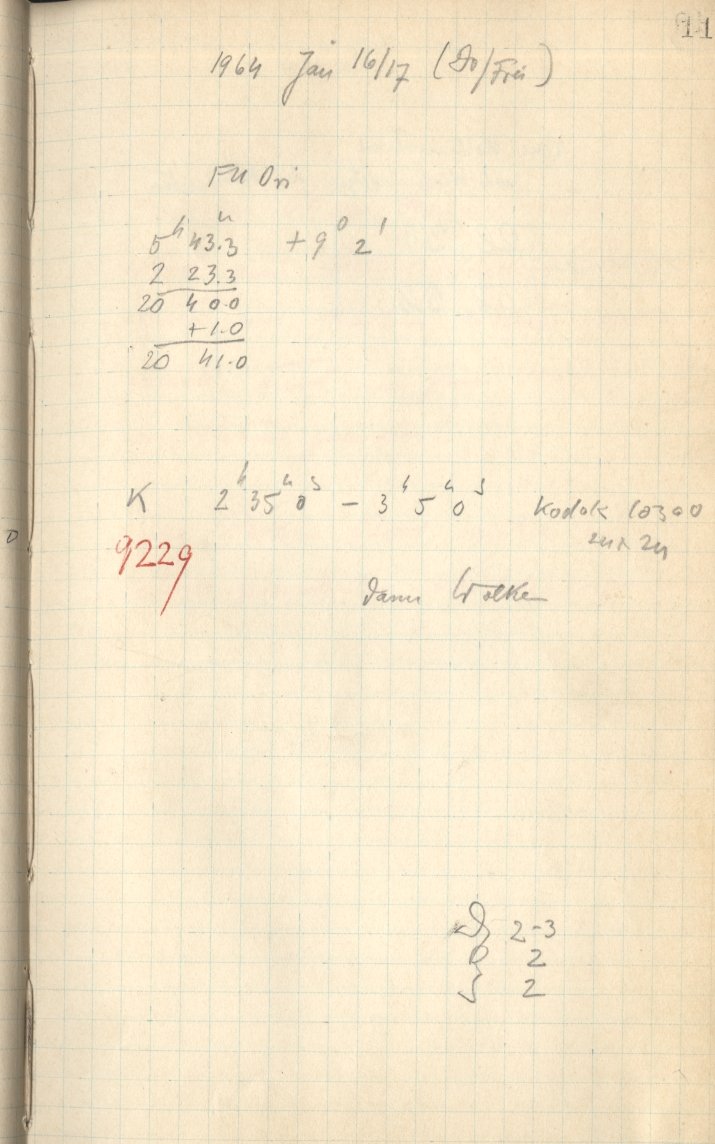 11
1964 Jan 16/17 (Do/Frei)
FU Ori
5h 43.3m +9° 2'
2 23.3
20 40.0
+1.0
20 41.0
K 2h 35m 0s - 3h 5m 0s Kodak 103a0
9229 24 x 24
dann Wolke
2-3
2
2